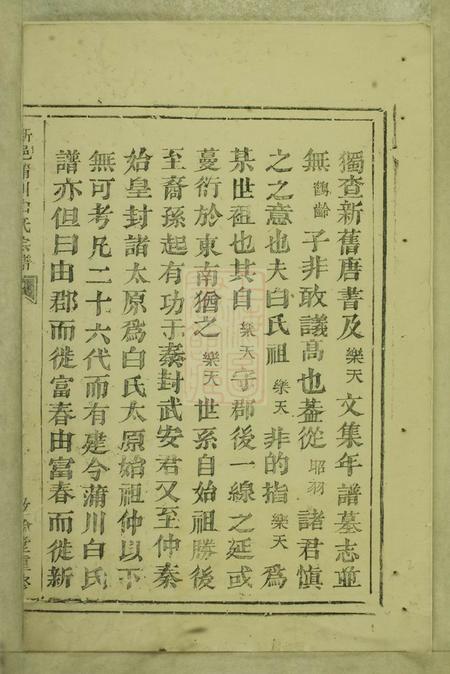 獨查新舊唐書及樂天文集年譜墓志並
無鶴齡子非敢議髙也葢從昭羽諸君慎
之之意也夫白氏祖樂天非的指樂天爲
某世祖也其自樂天守郡後一線之延或
蔓衍於東南猶之樂天世系自始祖勝後
至裔孫起有功于秦封武安君又至仲秦
始皇封諸太原爲白氏太原始祖仲以下
無可考凡二十六代而有建今蒲川白氏
譜亦但曰由郡而徙富春由富春而徙新
新邑蒲川白氏宗譜